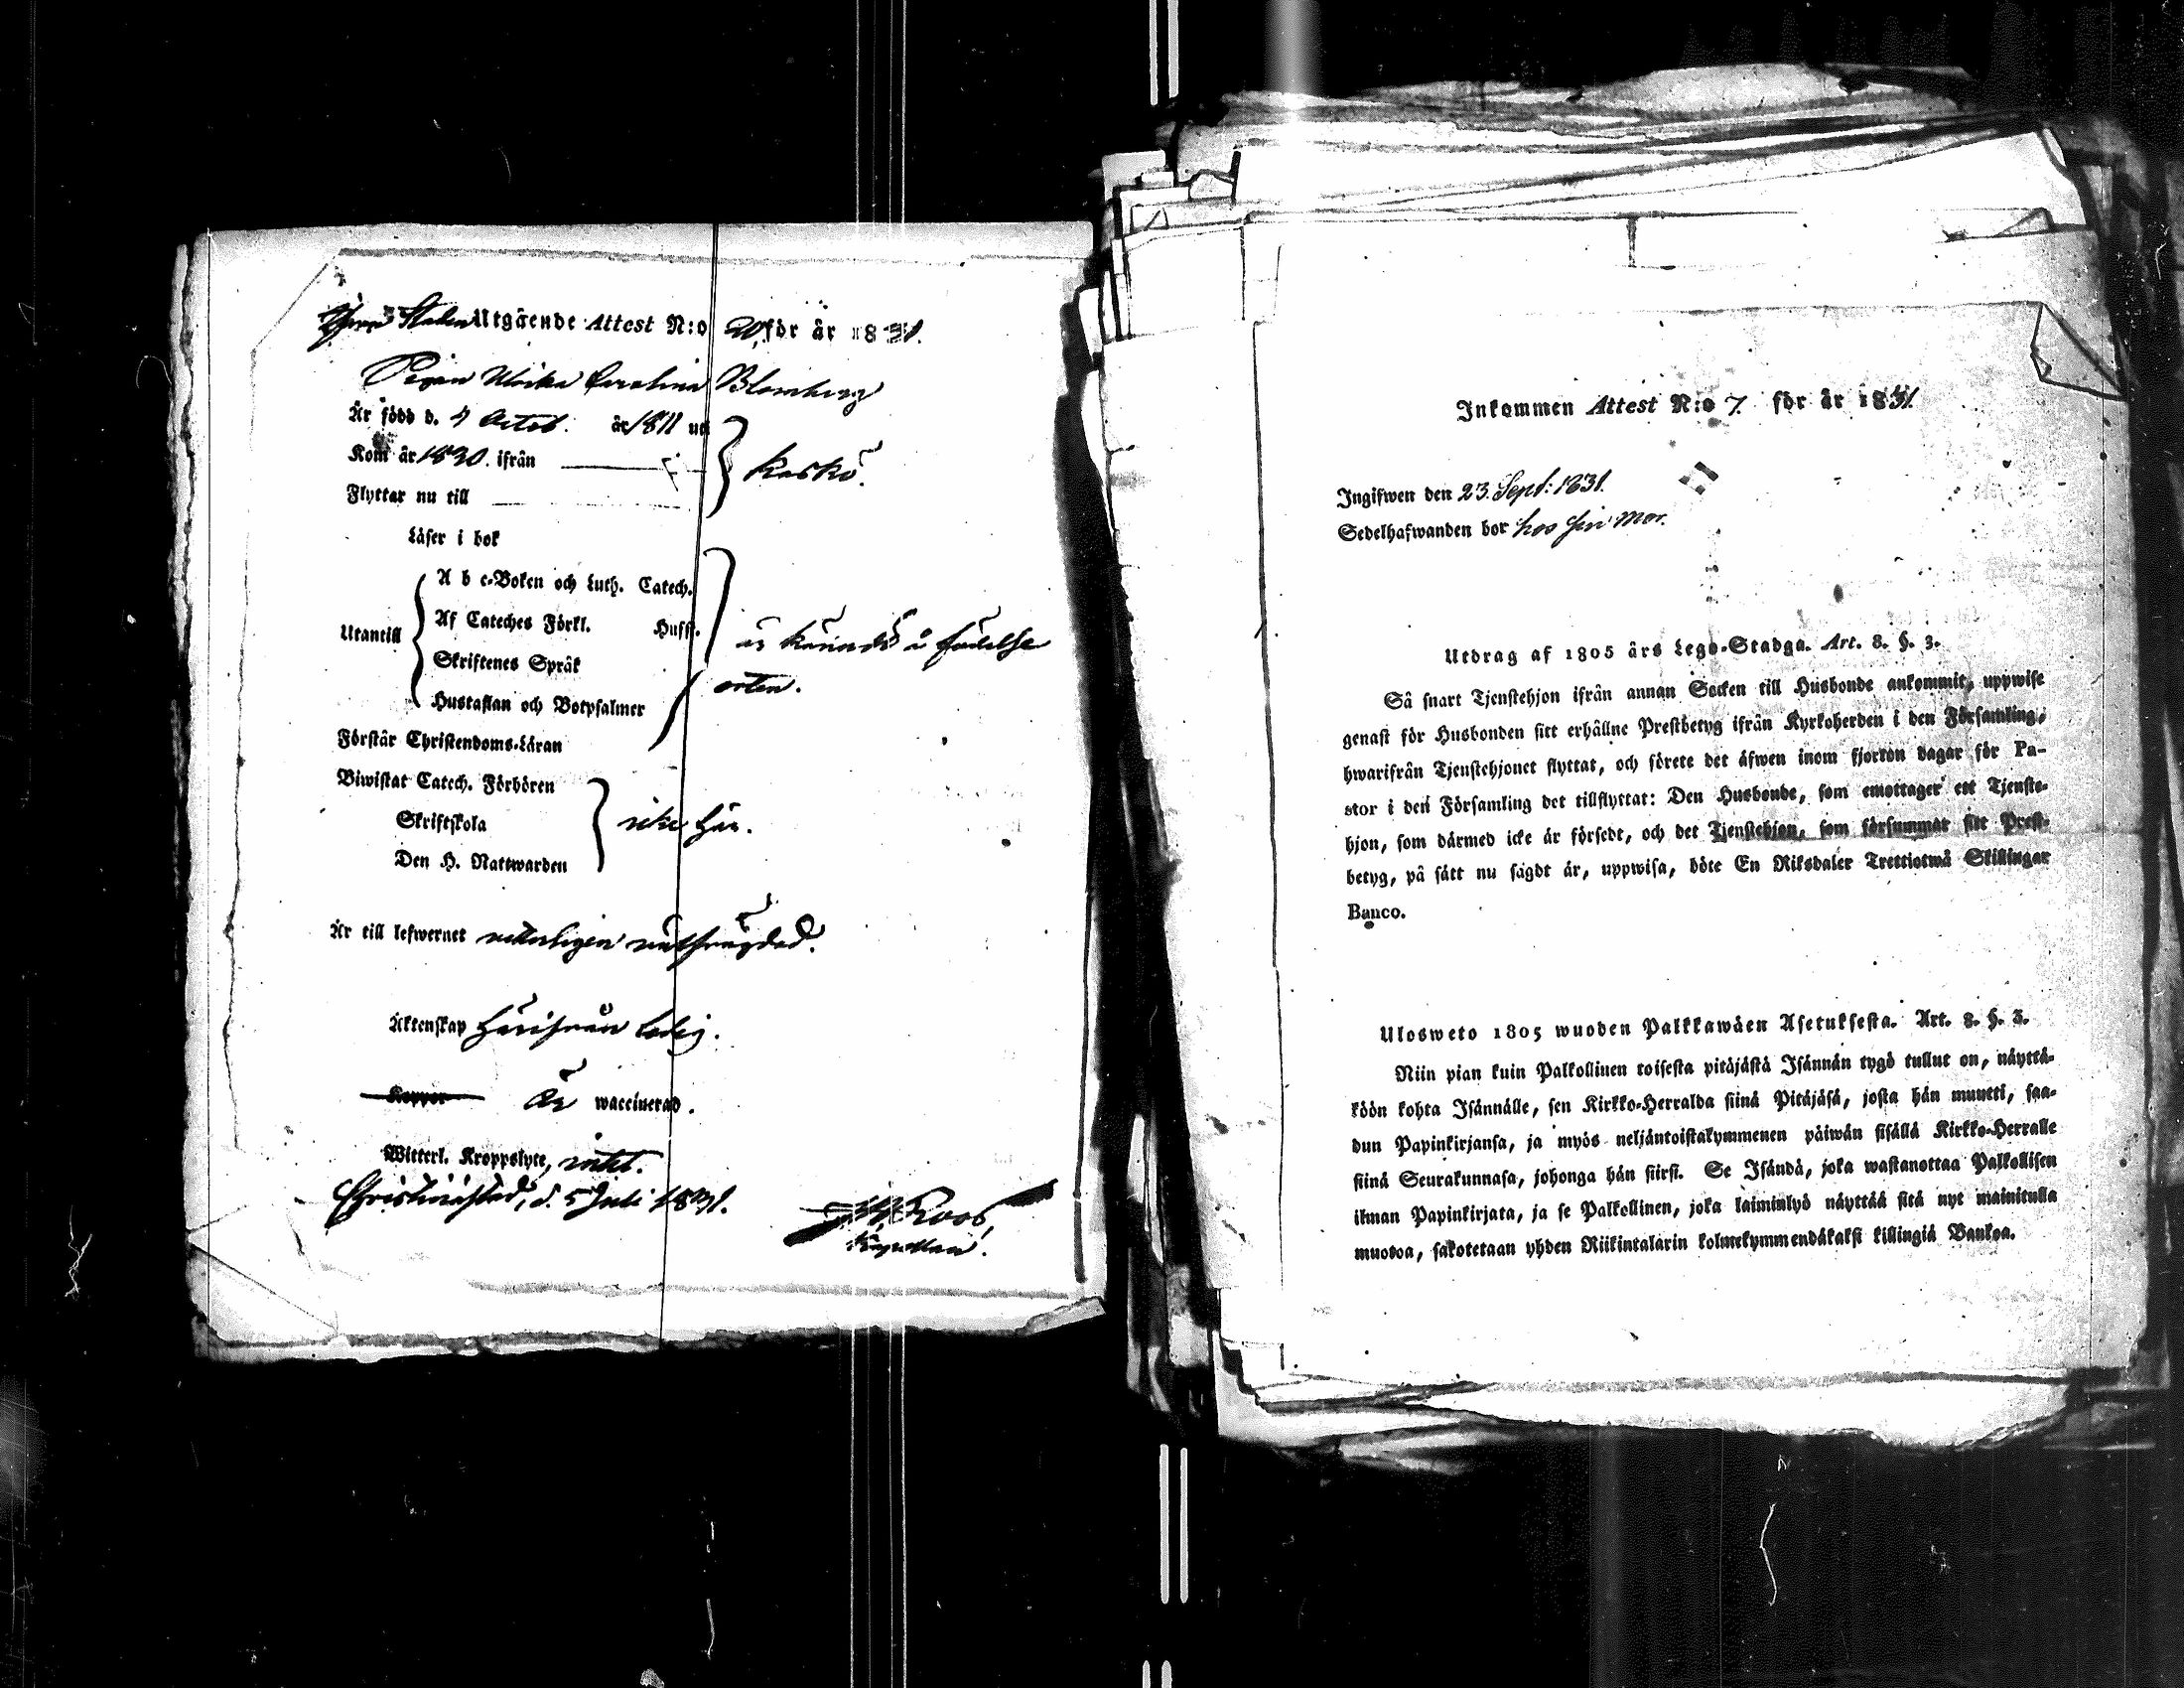 Utgående Attest N:o 20, för år 1831.
Pigan Ulrika Carolina Blomberg
Är född d. 4 Octob. år 1811 uti
Kom år 1830. ifrån
Flyttar nu till
Kaskö.
Läser i bok
Utantill
A b c-Boken och Luth. Catech.
Af Cateches Förkl. Huff.
Skriftenes Språk
Hustaflan och Botpsalmer
Förstår Christendoms-Läran
är känndt å födelse
orten.
Biwistat Catech. Förhören
Skriftskola
Den H. Nattwarden
icke här.
Är till lefwernet witterligen
Äktenskap härifrån ledig.
Koppor är waccinerad.
Witterl. Kroppslyte, intet.
Christinæstad, d. 5 Juli 1831.
Roos,
Capellan.
Inkommen Attest N:o 7. för år 1831.
Ingifwen den 23. Sept: 1831.
Sedelhafwanden bor hos sin Mor.
Utdrag af 1805 års Lego-Stadga. Art. 8. §. 3.
Så snart Tjenstehjon ifrån annan Socken till Husbonde ankommit, uppwise
genast för Husbonden sitt erhållne Prestbetyg ifrån Kyrkoherden i den Församling,
hwarifrån Tjenstehjonet flyttat, och förete det äfwen inom fjorton dagar för Pa-
stor i den Församling det tillflyttat: Den Husbonde, som emottager ett Tjenste-
hjon, som därmed icke är försedt, och det Tjenstehjon, som försummar sitt Prest-
betyg, på sätt nu sagdt är, uppwisa, böte En Riksdaler Trettiotwå Skillingar
Banco.
Ulosweto 1805 wuoden Palkkawäen Asetuksesta. Art. 8. §. 3.
Niin pian kuin Palkollinen toisesta pitäjästä Isännän tygö tullut on, näyttä-
köön kohta Isännälle, sen Kirkko-Herralda siinä Pitäjäsä, josta hän muutti, saa-
dun Papinkirjansa, ja myös neljäntoistakymmenen päiwän sisällä Kirkko-Herralle
siinä Seurakunnasa, johonga hän siirsi. Se Isändä, joka wastanottaa Palkollisen
ilman Papinkirjata, ja se Palkollinen, joka laiminlyö näyttää sitä nyt mainitulla
muotoa, sakotetaan yhden Riikintalarin kolmekymmendäkaksi killingiä Bankoa.